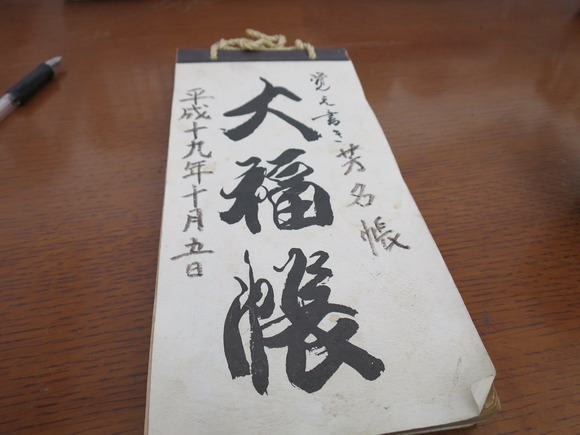 覚え書き
芳名帳
大福帳
平成十九年十月五日